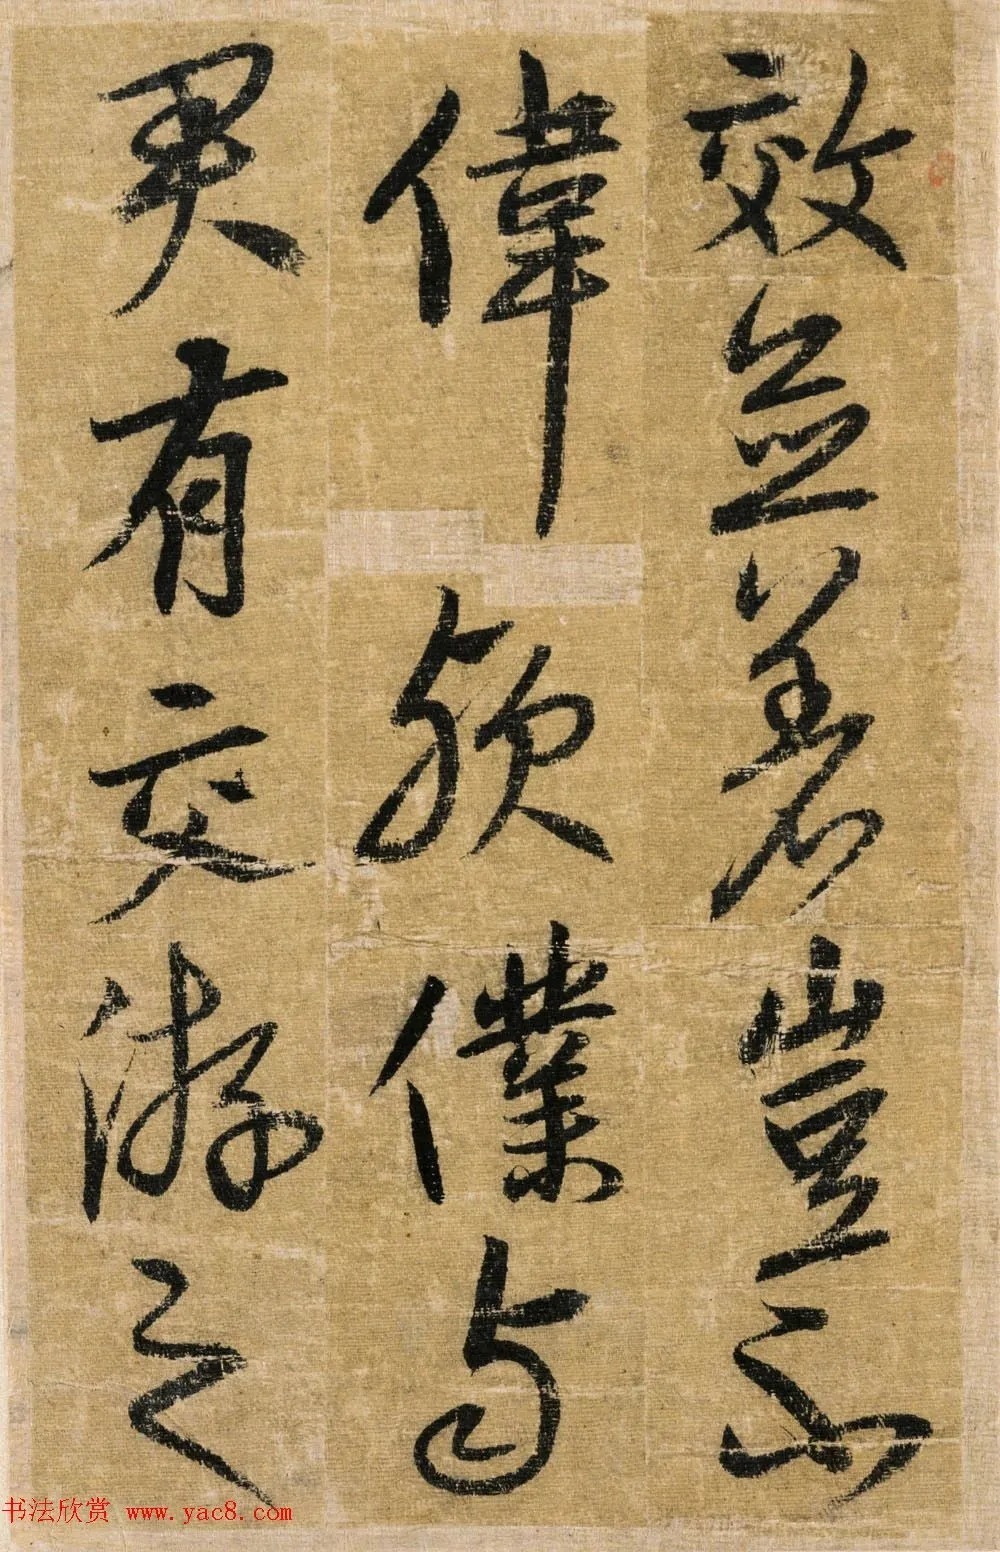 效益著豈不
偉歟僕與
君有交游之
书法欣赏 www.yac8.com